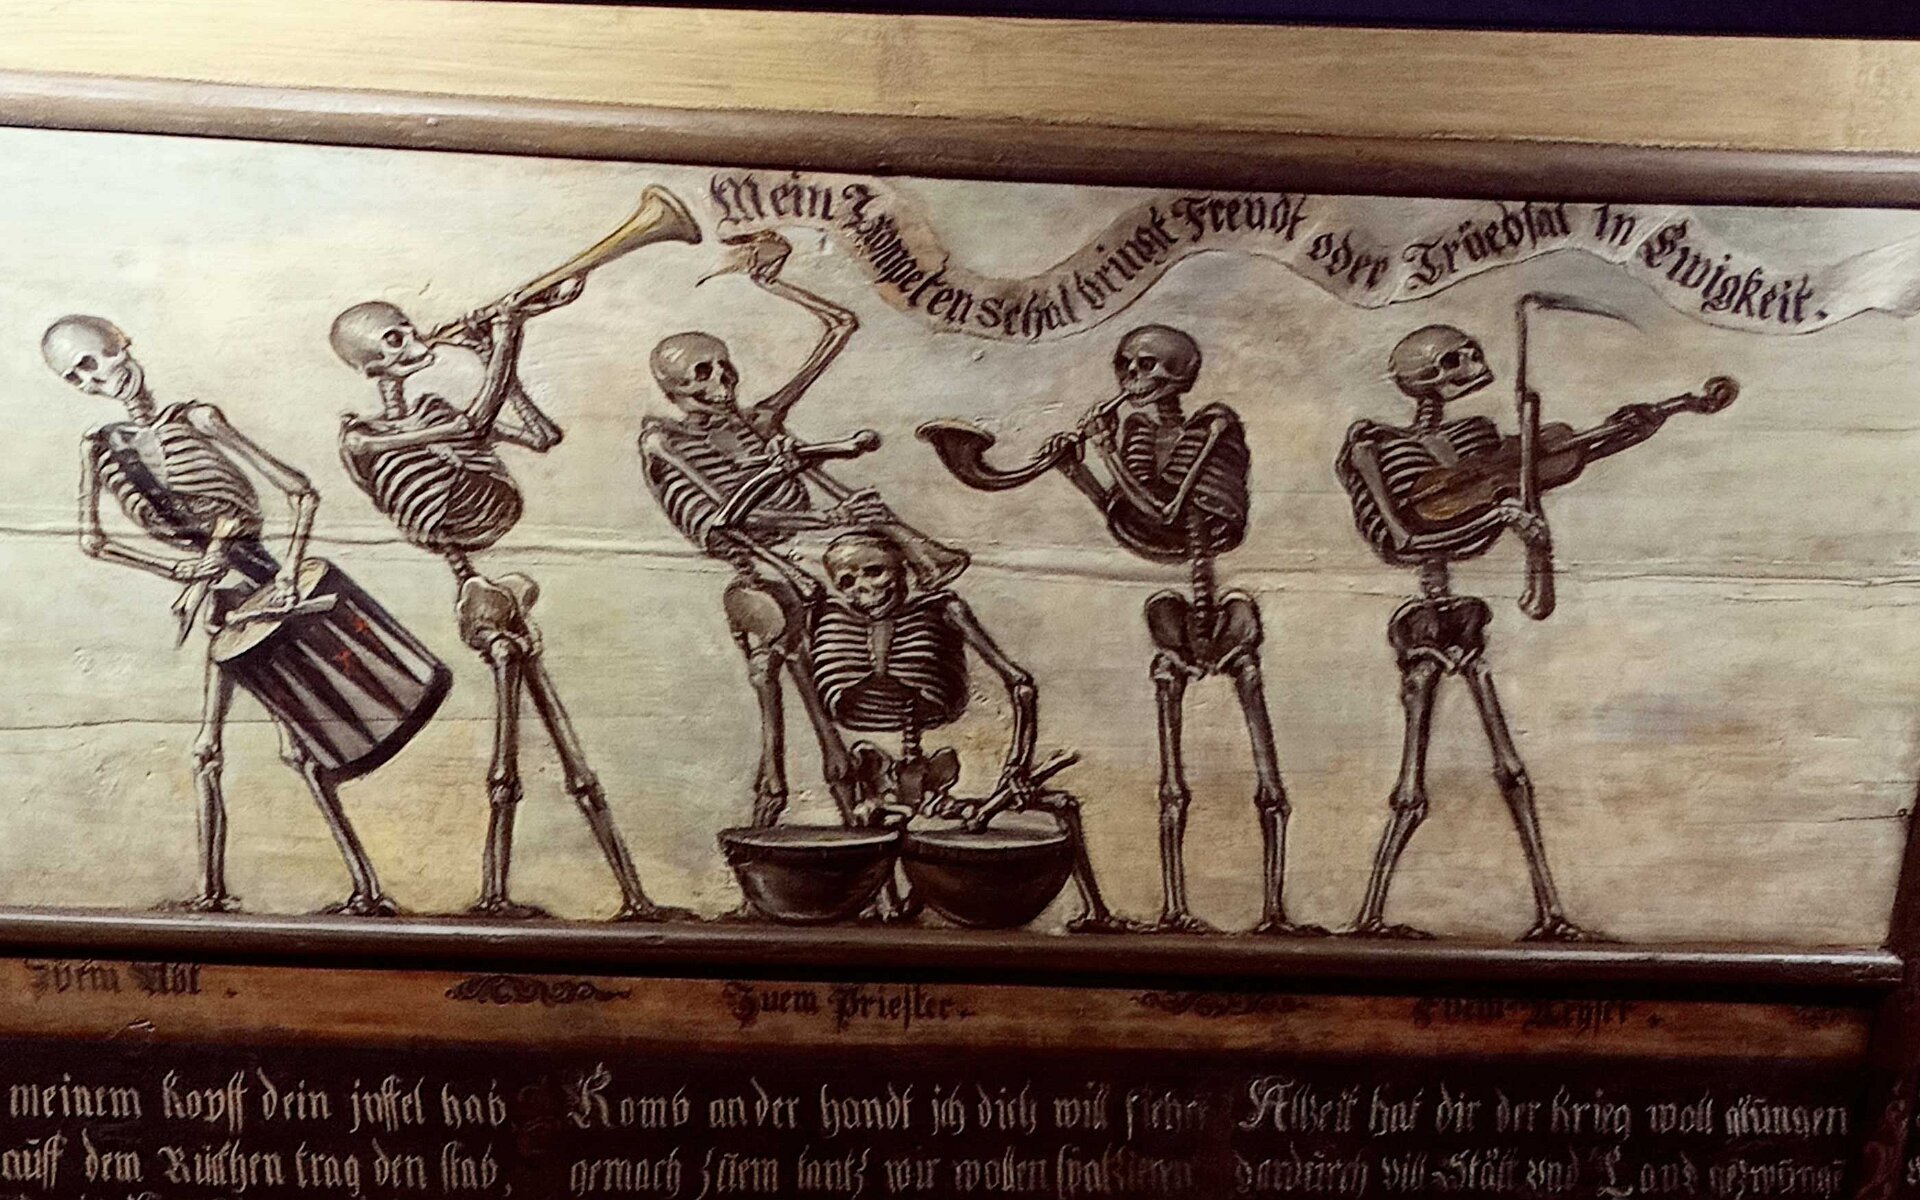 Mein Trompeten schal bringt Freudt oder Trüebsal in Ewigkeit.
Zuem Abt.
Zuem Priester.
Zuem Keyser.
meinem kopff dein jnffel hab
auff dem Rückhen trag den stab,
Komb an der handt ich dich will
gemach zuem tantz wir wollen spatzieren
Allzeit hat dir der krieg woll glungen
dardurch vill Stätt und Land gezwungē